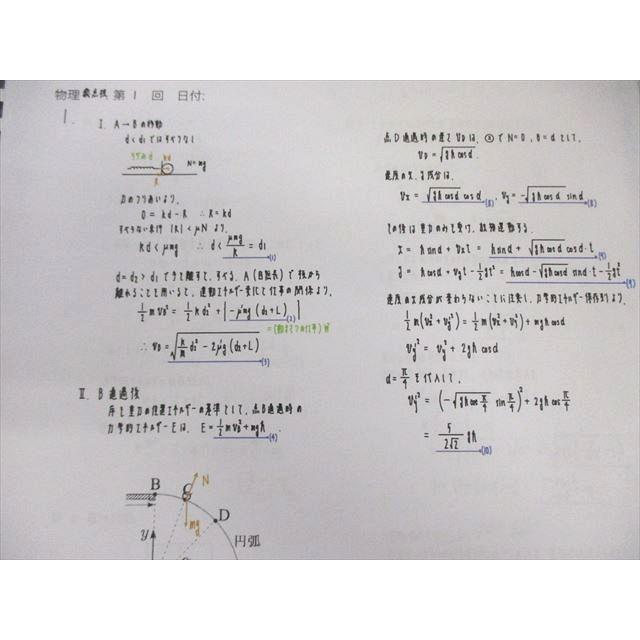 物理 第 1 回 日付:
1.
I. A→Bの移動
d<d₁ではすべらない
kd
N=mg
R
力のつり合いより、
0 = kd-R ∴ R=kd
すべらない条件 |R|<μN より、
kd<μmg ∴ d< μmg/k = d₁ (1)
d=d₂>d₁で手を離すと、すべる。A(自然長)で板から
離れることを用いると、運動エネルギー変化と仕事の関係より、
1/2 mv_B² = 1/2 kd₂² + -μ'mg(d₂+L) (2)
∴ v_B = √(k/m d₂² - 2μ'g(d₂+L)) (3)
II. B通過後
序と重力の位置エネルギーの基準として、点B通過時の
力学的エネルギーEは、E = 1/2 mv_B² + mgh (4)
B
C
N
mg
D
y
円弧
点D通過時の速さv_Dは、③でN=0, θ=αとして、
v_D = √(gh cosα).
速度のx, y成分は、
v_x = √(gh cosα) cosα (8), v_y = -√(gh cosα) sinα (8)
その後は重力のみを受け、放物運動する。
x = h sinα + v_x t = h sinα + √(gh cosα) cosα·t (9)
y = h cosα + v_y t - 1/2 gt² = h cosα - √(gh cosα) sinα·t - 1/2 gt² (9)
速度のx成分が変わらないことに注意し、力学的エネルギー保存則より、
1/2 m(v_x² + v_y'²) = 1/2 m(v_x² + v_y²) + mgh cosα
v_y'² = v_y² + 2gh cosα
α = π/4 を代入して、
v_y'² = (-√(gh cos π/4) sin π/4)² + 2gh cos π/4
= 5/(2√2) gh (10)